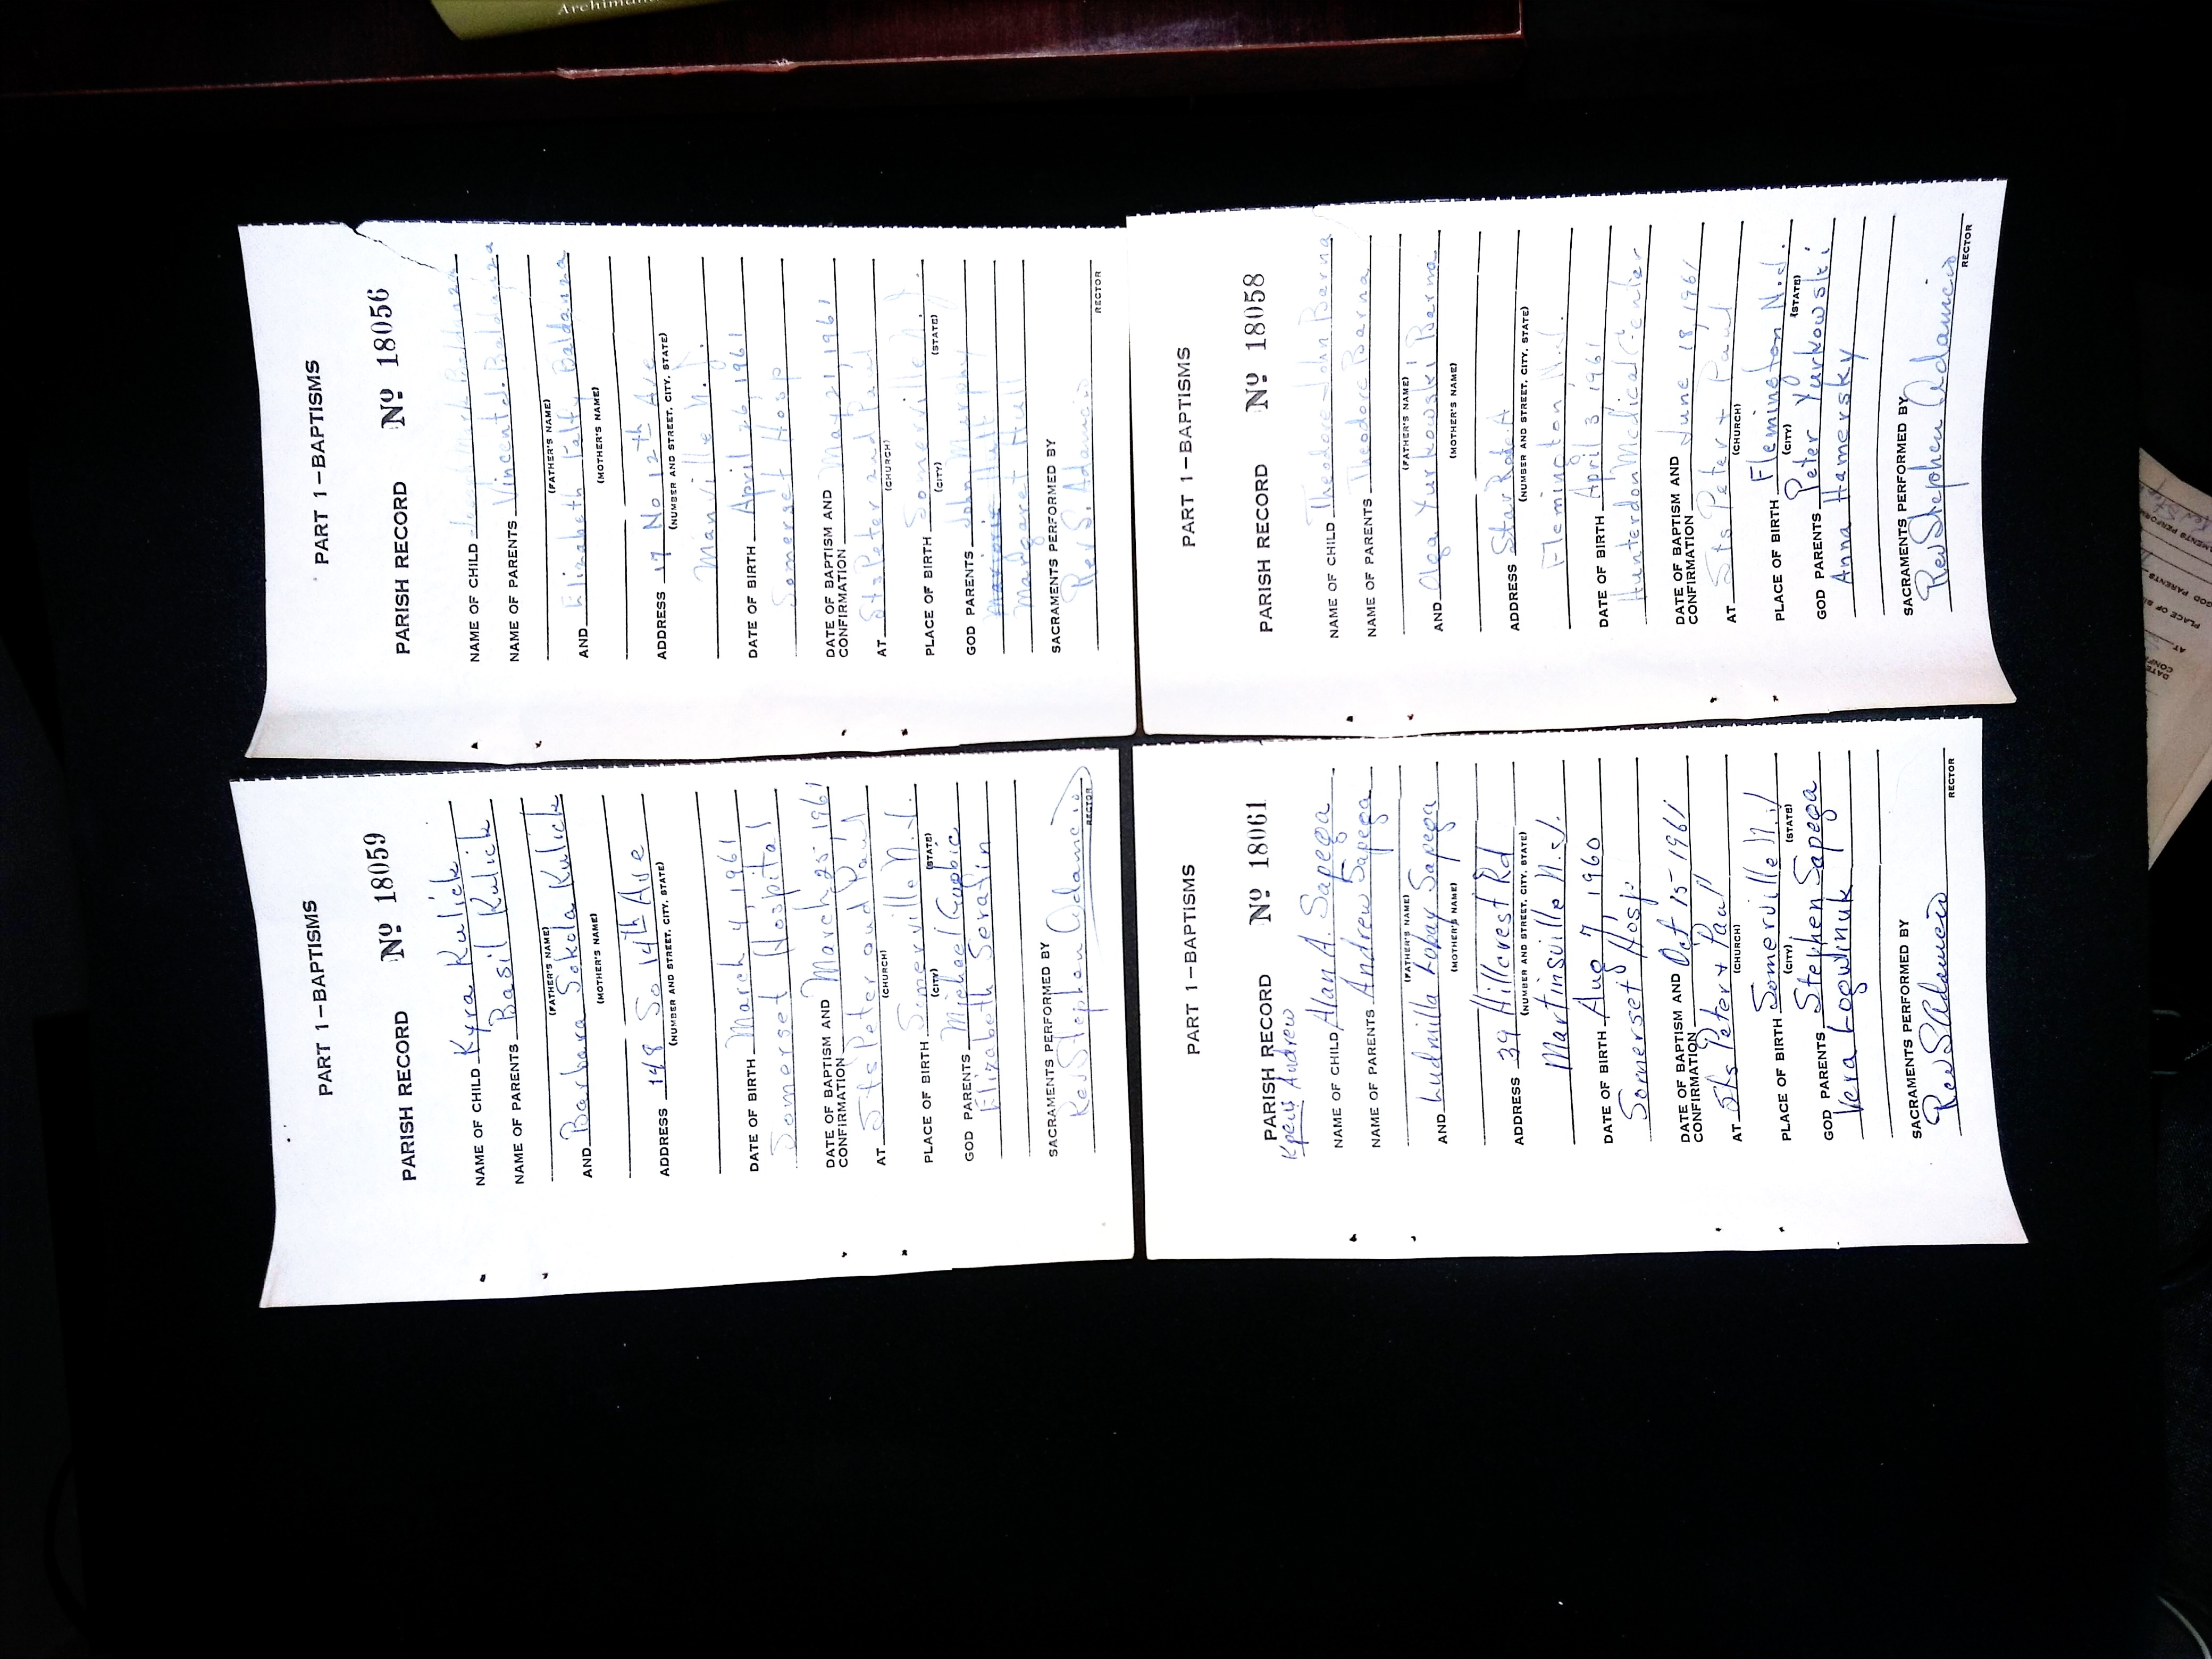 PART 1—BAPTISMS
PARISH RECORD No 18059
NAME OF CHILD Kyra Kulick
NAME OF PARENTS Basil Kulick
(FATHER'S NAME)
AND Barbara Sokola Kulick
(MOTHER'S NAME)
ADDRESS 148 So 14th Ave
(NUMBER AND STREET, CITY, STATE)
DATE OF BIRTH March 4, 1961
Somerset Hospital
DATE OF BAPTISM AND
CONFIRMATION March 25, 1961
AT Sts Peter and Paul
(CHURCH)
PLACE OF BIRTH Somerville N.J.
(CITY) (STATE)
GOD PARENTS Michael
Elizabeth Serafin
SACRAMENTS PERFORMED BY
Rev Stephen Adamcio
RECTOR
PART 1—BAPTISMS
PARISH RECORD No 18056
NAME OF CHILD Joseph Mark Baldanza
NAME OF PARENTS Vincent J. Baldanza
(FATHER'S NAME)
AND Elizabeth Falty Baldanza
(MOTHER'S NAME)
ADDRESS 17 No 12th Ave
(NUMBER AND STREET, CITY, STATE)
Manville N.J.
DATE OF BIRTH April 26, 1961
Somerset Hosp
DATE OF BAPTISM AND
CONFIRMATION May 21, 1961
AT Sts Peter and Paul
(CHURCH)
PLACE OF BIRTH Somerville N.J.
(CITY) (STATE)
GOD PARENTS John Murphy
Marjorie Hull
Margaret Hull
SACRAMENTS PERFORMED BY
Rev S. Adamcio
RECTOR
PART 1—BAPTISMS
PARISH RECORD No 18061
Крещ Andrew
NAME OF CHILD Alan A. Sapega
NAME OF PARENTS Andrew Sapega
(FATHER'S NAME)
AND Ludmilla Lobay Sapega
(MOTHER'S NAME)
ADDRESS 39 Hillcrest Rd
(NUMBER AND STREET, CITY, STATE)
Martinsville N.J.
DATE OF BIRTH Aug 7, 1960
Somerset Hosp
DATE OF BAPTISM AND
CONFIRMATION Oct 15 1961
AT Sts Peter + Paul
(CHURCH)
PLACE OF BIRTH Somerville N.J
(CITY) (STATE)
GOD PARENTS Stephen Sapega
Vera Logwinuk
SACRAMENTS PERFORMED BY
Rev S Adamcio
RECTOR
PART 1—BAPTISMS
PARISH RECORD No 18058
NAME OF CHILD Theodore John Barna
NAME OF PARENTS Theodore Barna
(FATHER'S NAME)
AND Olga Yurkowski Barna
(MOTHER'S NAME)
ADDRESS Star Rote. A
(NUMBER AND STREET, CITY, STATE)
Flemington N.J.
DATE OF BIRTH April 3, 1961
Hunterdon Medical Center
DATE OF BAPTISM AND
CONFIRMATION June 18, 1961
AT Sts Peter + Paul
(CHURCH)
PLACE OF BIRTH Flemington N.J.
(CITY) (STATE)
GOD PARENTS Peter Yurkowski
Anna Hamersky
SACRAMENTS PERFORMED BY
Rev Stephen Adamcio
RECTOR